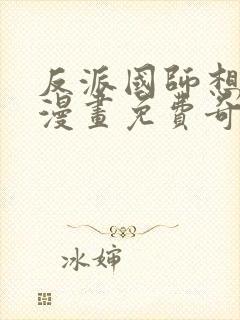 反派國師想
漫畫免費奇
冰婶